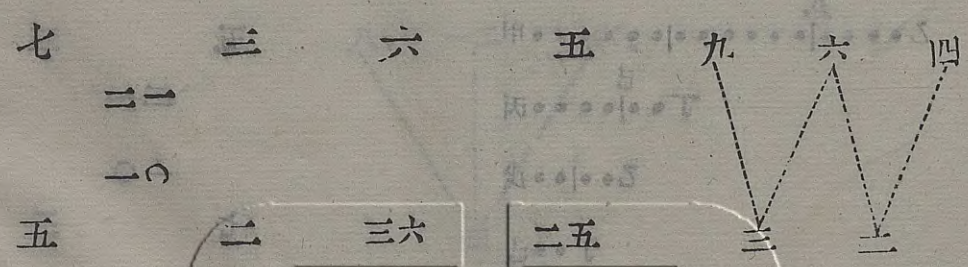 七 三 六 五 九 六 四
二一
一〇
五 二 三六 二五 三 二